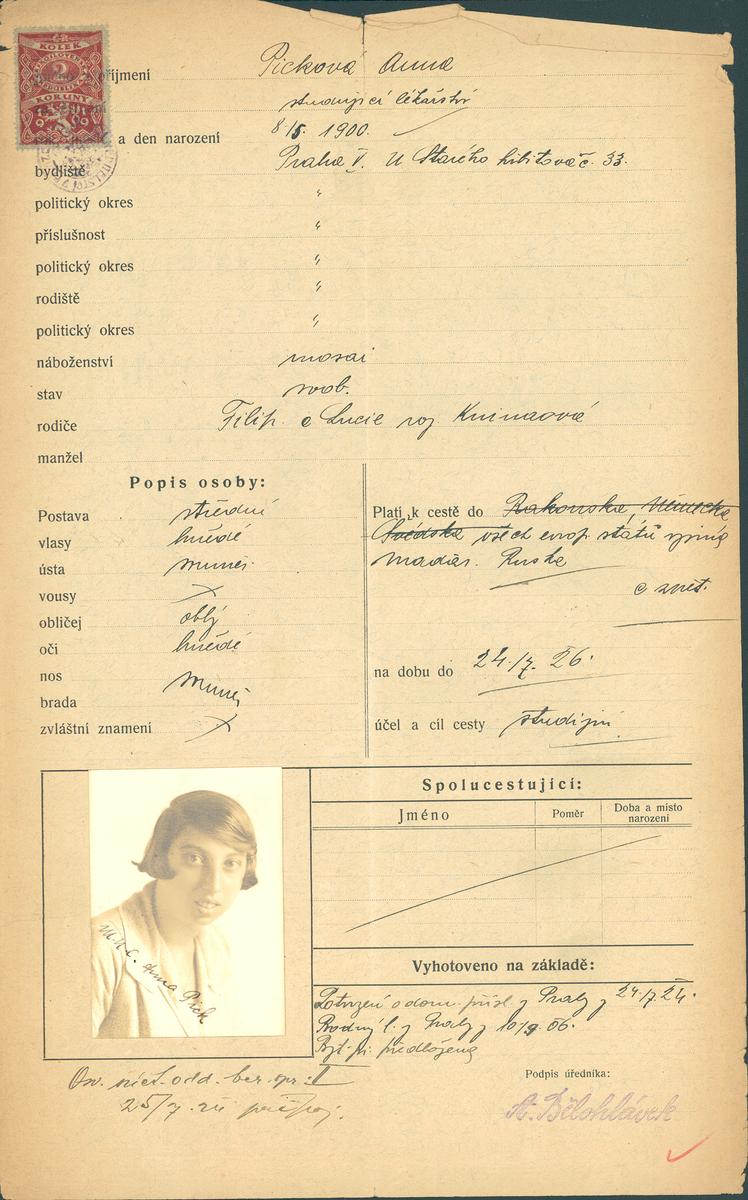 KOLEK
2
KORUNY
1919
příjmení Picková Anna
studující lékařství
a den narození 8/5. 1900.
bydliště Praha V. U Starého hřbitova č. 33.
politický okres "
příslušnost "
politický okres "
rodiště "
politický okres "
náboženství mosai
stav svob.
rodiče Filip a Lucie roz.
manžel
Popis osoby:
Postava střední
vlasy hnědé
ústa
vousy
obličej oblý
oči hnědé
nos
brada
zvláštní znamení
Platí k cestě do Rakouska, Německa
Švédska všech evrop. států vyjma
Maďar. Ruska
a zpět.
na dobu do 24./7. 26.
účel a cíl cesty studijní
Spolucestující:
Jméno Poměr Doba a místo narození
M.U.C. Anna Pick
Vyhotoveno na základě:
Potvrzení o dom. přísl. z Prahy z 24./7. 24.
Rodný l. z Prahy z 10/9. 06.
předložena
25/7. 24
Podpis úředníka:
A. Bělohlávek